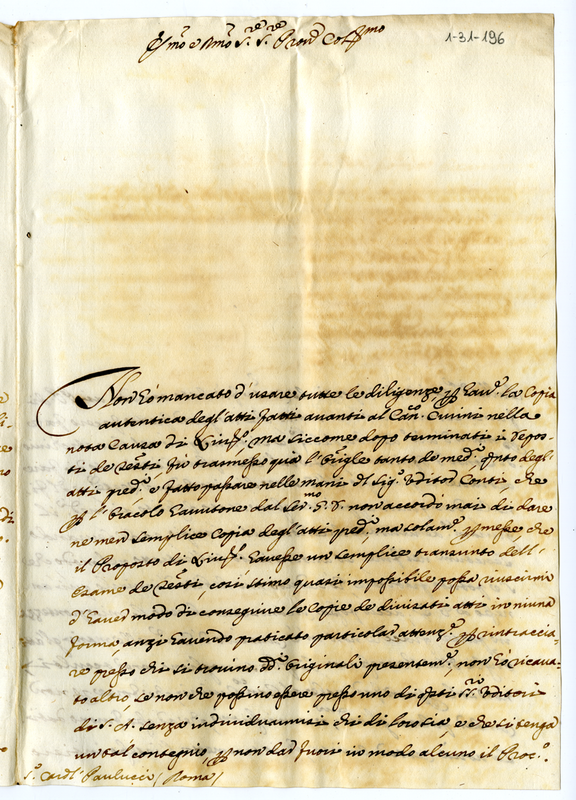 1-31-196
Non hò mancato d'usare tutte le diligenze p hav.e la Copia
autentica degl'atti fatti avanti al Can.o Cuini nella
nota Causa di Liv.o, ma siccome dopo terminati i depos-
ti de Testi fù trasmesso quà l'Orig.le tanto de med.i, q.nto degl'
atti pred.i e fatto passare nelle mani del Sig.r Uditor Conti, che
p l'Oracolo havutone dal Ser.mo G. D. non accordò mai di dare
ne men semplice Copia degl'atti pred.i, ma solam.e permesse, che
il Proposto di havesse un semplice transunto dell'
Esame de Testi, così stimo quasi impossibile possa riuscirmi
d'haver modo di conseguire le Copie de divisati atti in niuna
forma, anzi havendo praticato particolar attenz.e p rintraccia-
re presso chi si trovino dd.i Originali presentem.e, non hò ricava-
to altro se non che possino essere presso uno di questi SS.ri Uditori
di S. A. senza individuarmisi chi di loro sia, e che si tenga
un tal contegno, p non dar fuori in modo alcuno il Proc.o
S.r Card.l Paulucci / Roma /